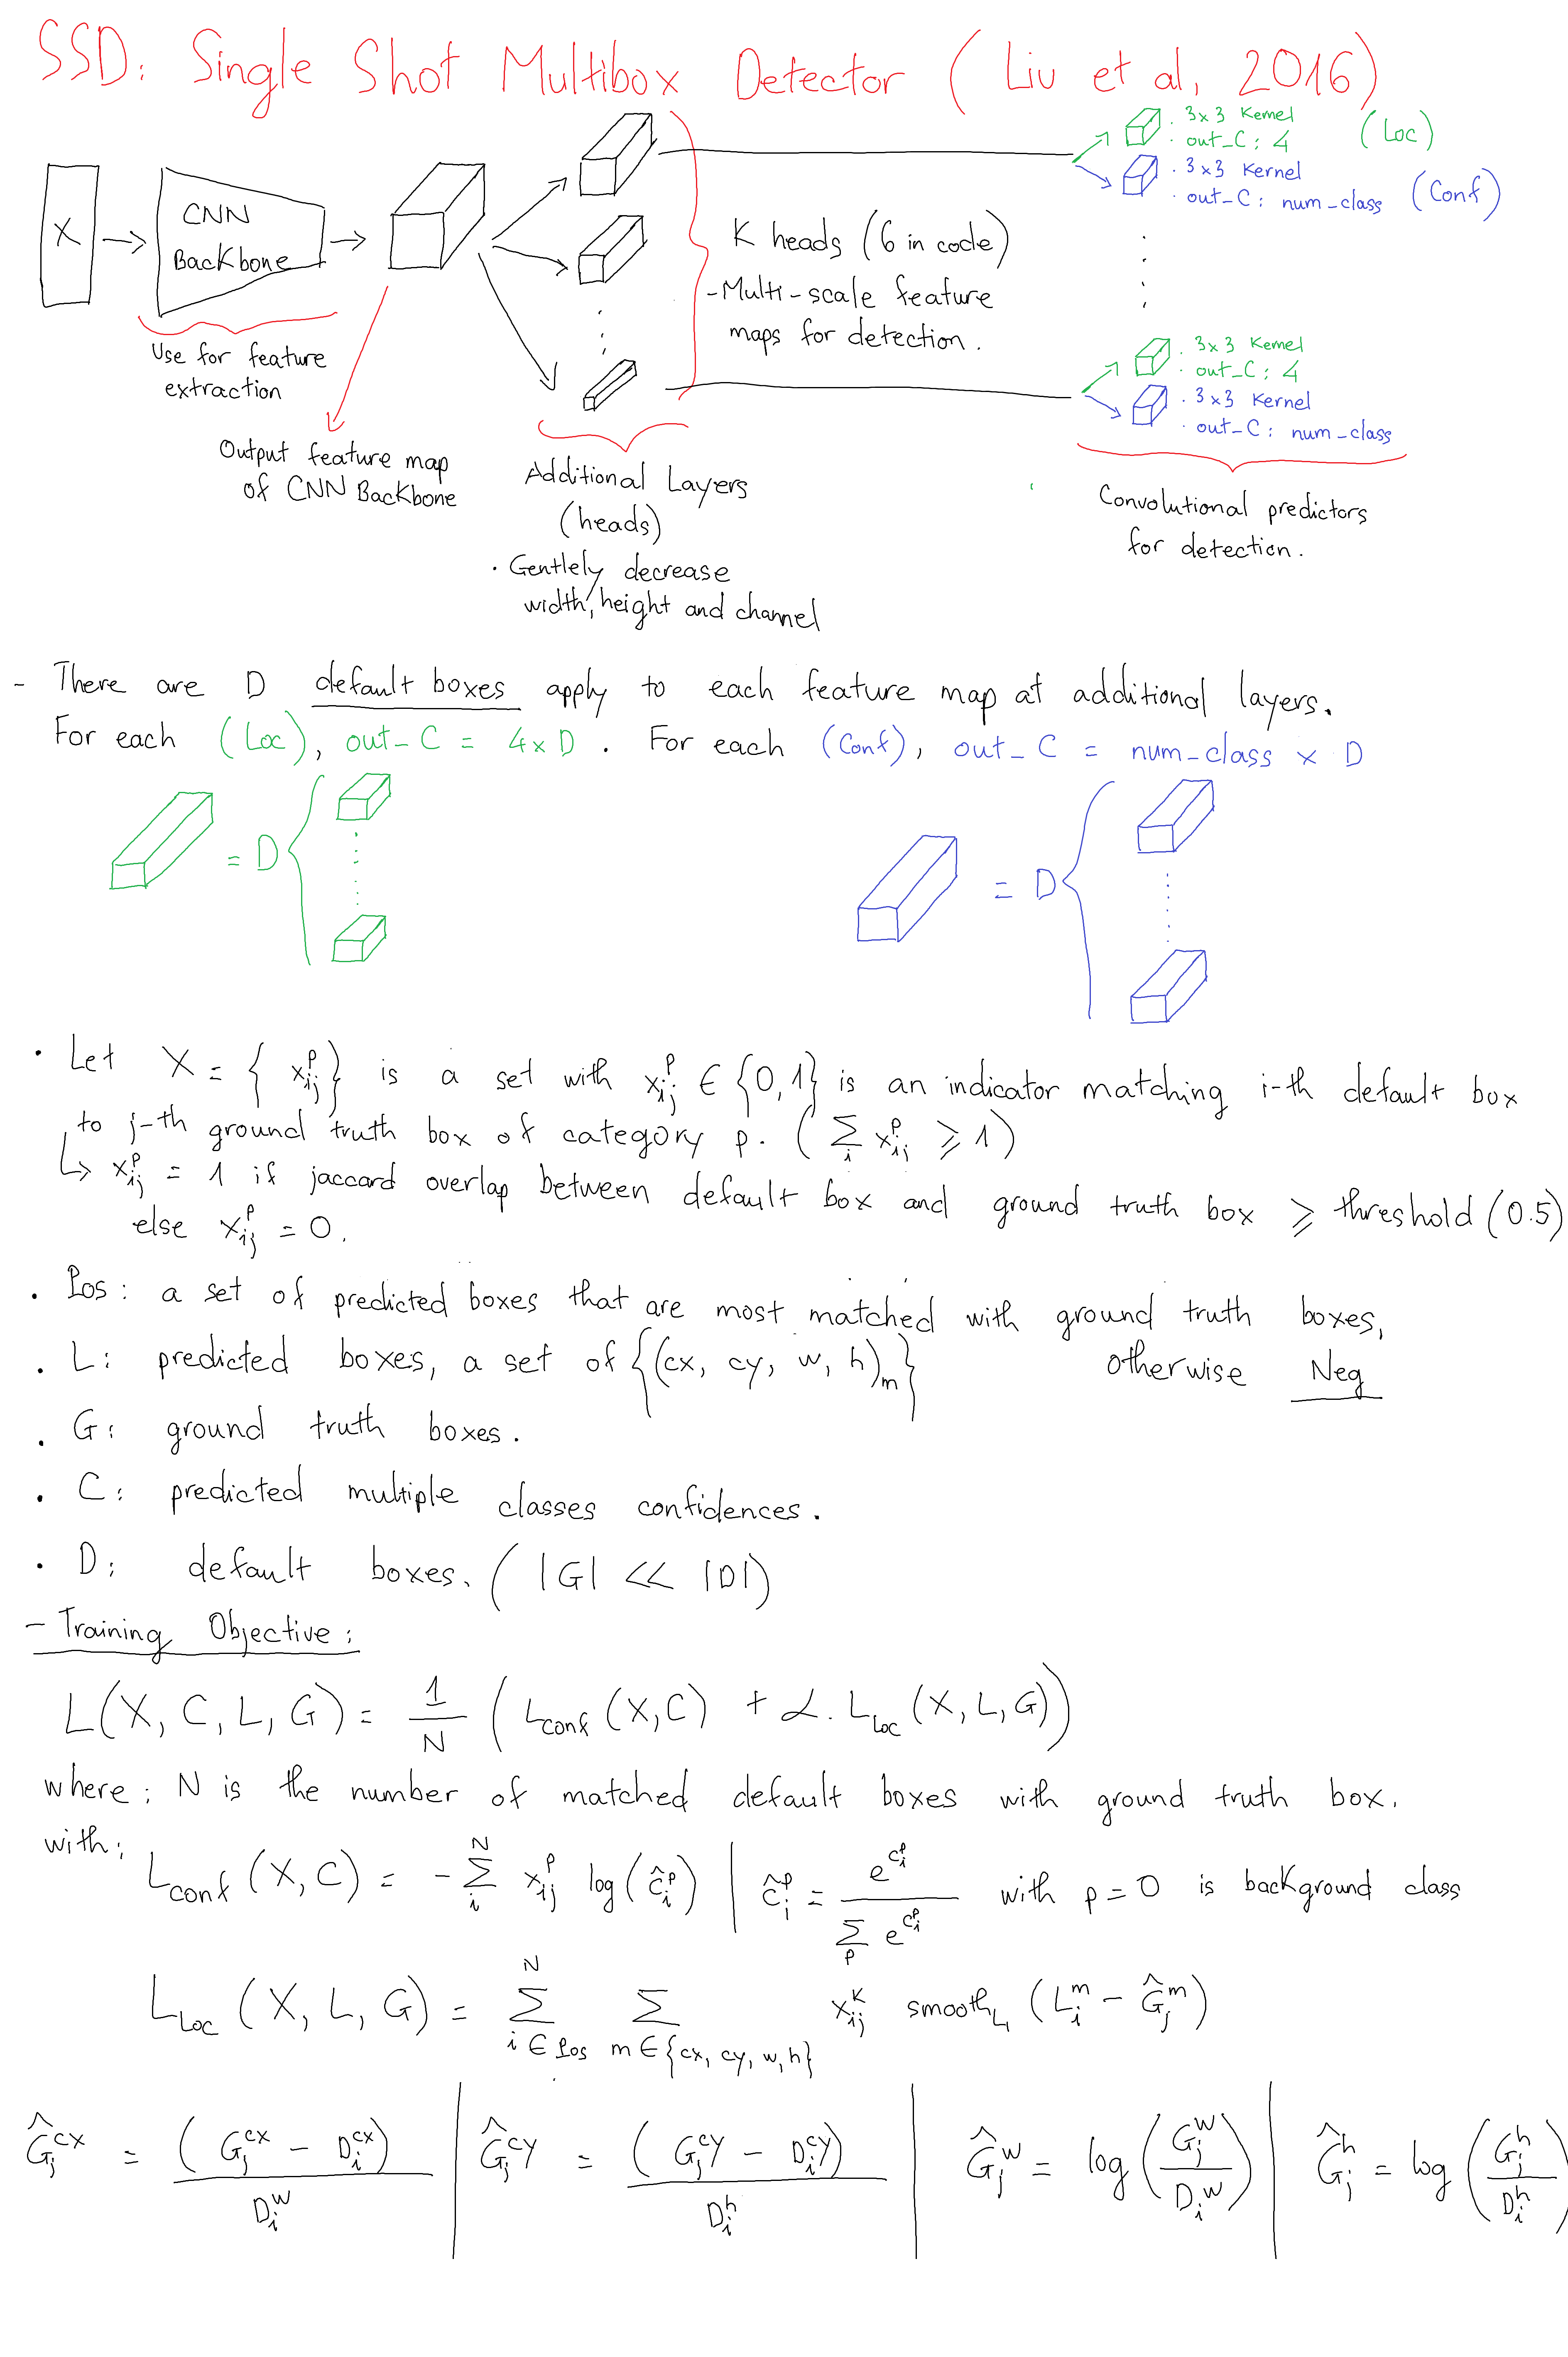 SSD: Single Shot Multibox Detector (Liu et al, 2016)
X
CNN
Backbone
Use for feature
extraction
Output feature map
of CNN Backbone
Additional Layers
(heads)
. Gentlely decrease
width, height and channel
K heads (6 in code)
- Multi-scale feature
maps for detection.
. 3x3 Kernel
. out_C: 4
(Loc)
. 3x3 Kernel
. out_C: num_class
(Conf)
. 3x3 Kernel
. out_C: 4
. 3x3 Kernel
. out_C: num_class
Convolutional predictors
for detection.
- There are D default boxes apply to each feature map at additional layers.
For each (Loc), out_C = 4xD. For each (Conf), out_C = num_class x D
= D
= D
. Let X = { x_ij^p } is a set with x_ij^p ∈ {0,1} is an indicator matching i-th default box
to j-th ground truth box of category p. ( ∑_i x_ij^p ⩾ 1)
↳ x_ij^p = 1 if jaccard overlap between default box and ground truth box ⩾ threshold (0.5)
else x_ij^p = 0.
. Pos: a set of predicted boxes that are most matched with ground truth boxes,
otherwise Neg
. L: predicted boxes, a set of {(cx, cy, w, h)_m}
. G: ground truth boxes.
. C: predicted multiple classes confidences.
. D: default boxes. ( |G| << |D| )
- Training Objective:
L(X, C, L, G) = 1/N ( L_conf (X,C) + α. L_loc (X, L, G) )
where: N is the number of matched default boxes with ground truth box.
with:
L_conf (X, C) = - ∑_i^N x_ij^p log(ĉ_i^p) | ĉ_i^p = e^(c_i^p) / ∑_p e^(c_i^p) with p = 0 is background class
L_Loc (X, L, G) = ∑_(i ∈ Pos)^N ∑_(m ∈ {cx, cy, w, h}) x_ij^k smooth_L1 (L_i^m - Ĝ_j^m)
Ĝ_j^cx = (G_j^cx - D_i^cx) / D_i^w | Ĝ_j^cy = (G_j^cy - D_i^cy) / D_i^h | Ĝ_j^w = log(G_j^w / D_i^w) | Ĝ_j^h = log(G_j^h / D_i^h